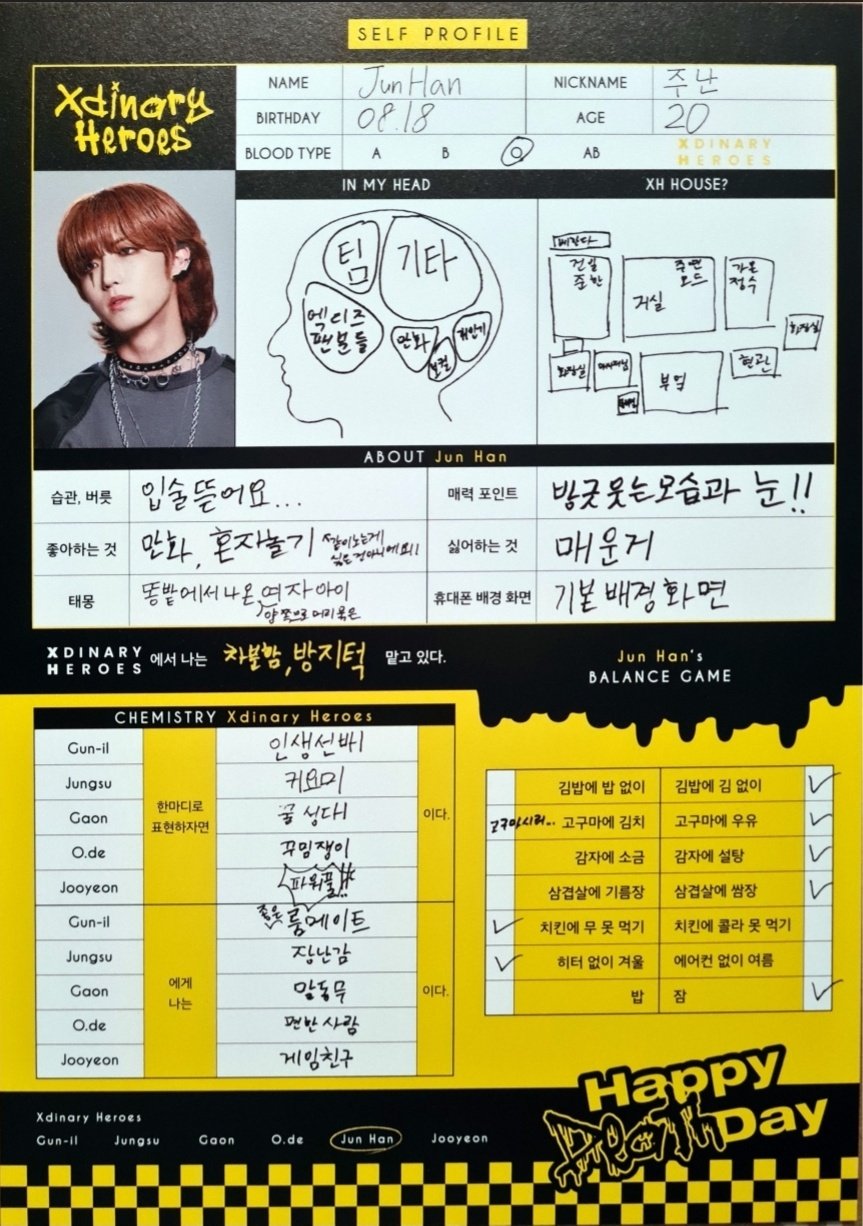 SELF PROFILE
Xdinary
Heroes
NAME JunHan NICKNAME 주난
BIRTHDAY 08.18 AGE 20
BLOOD TYPE A B O AB XDINARY
HEROES
IN MY HEAD XH HOUSE?
팀
기타
엑디즈
팬분들
만화
보컬
베란다
건일
준한
주연
오드
거실
가온
정수
화장실
화장실
부엌
현관
ABOUT Jun Han
습관, 버릇 입술뜯어요... 매력 포인트 방긋웃는모습과 눈!!
좋아하는 것 만화, 혼자놀기 싫어하는 것 매운거
태몽 똥밭에서 나온 여자아이 휴대폰 배경 화면 기본 배경화면
양쪽으로 머리묶은
XDINARY
HEROES 에서 나는 차분함, 방지턱 맡고 있다.
Jun Han's
BALANCE GAME
CHEMISTRY Xdinary Heroes
한마디로
표현하자면
Gun-il 인생선배
Jungsu 커요미
Gaon 꿀성대
O.de 꾸밈쟁이
Jooyeon 파워풀!!
이다.
에게
나는
Gun-il 좋은 룸메이트
Jungsu 장난감
Gaon 말동무
O.de 편한사람
Jooyeon 게임친구
이다.
김밥에 밥 없이 김밥에 김 없이
고구마시러... 고구마에 김치 고구마에 우유
감자에 소금 감자에 설탕
삼겹살에 기름장 삼겹살에 쌈장
치킨에 무 못 먹기 치킨에 콜라 못 먹기
히터 없이 겨울 에어컨 없이 여름
밥 잠
Happy
Death Day
Xdinary Heroes
Gun-il Jungsu Gaon O.de Jun Han Jooyeon